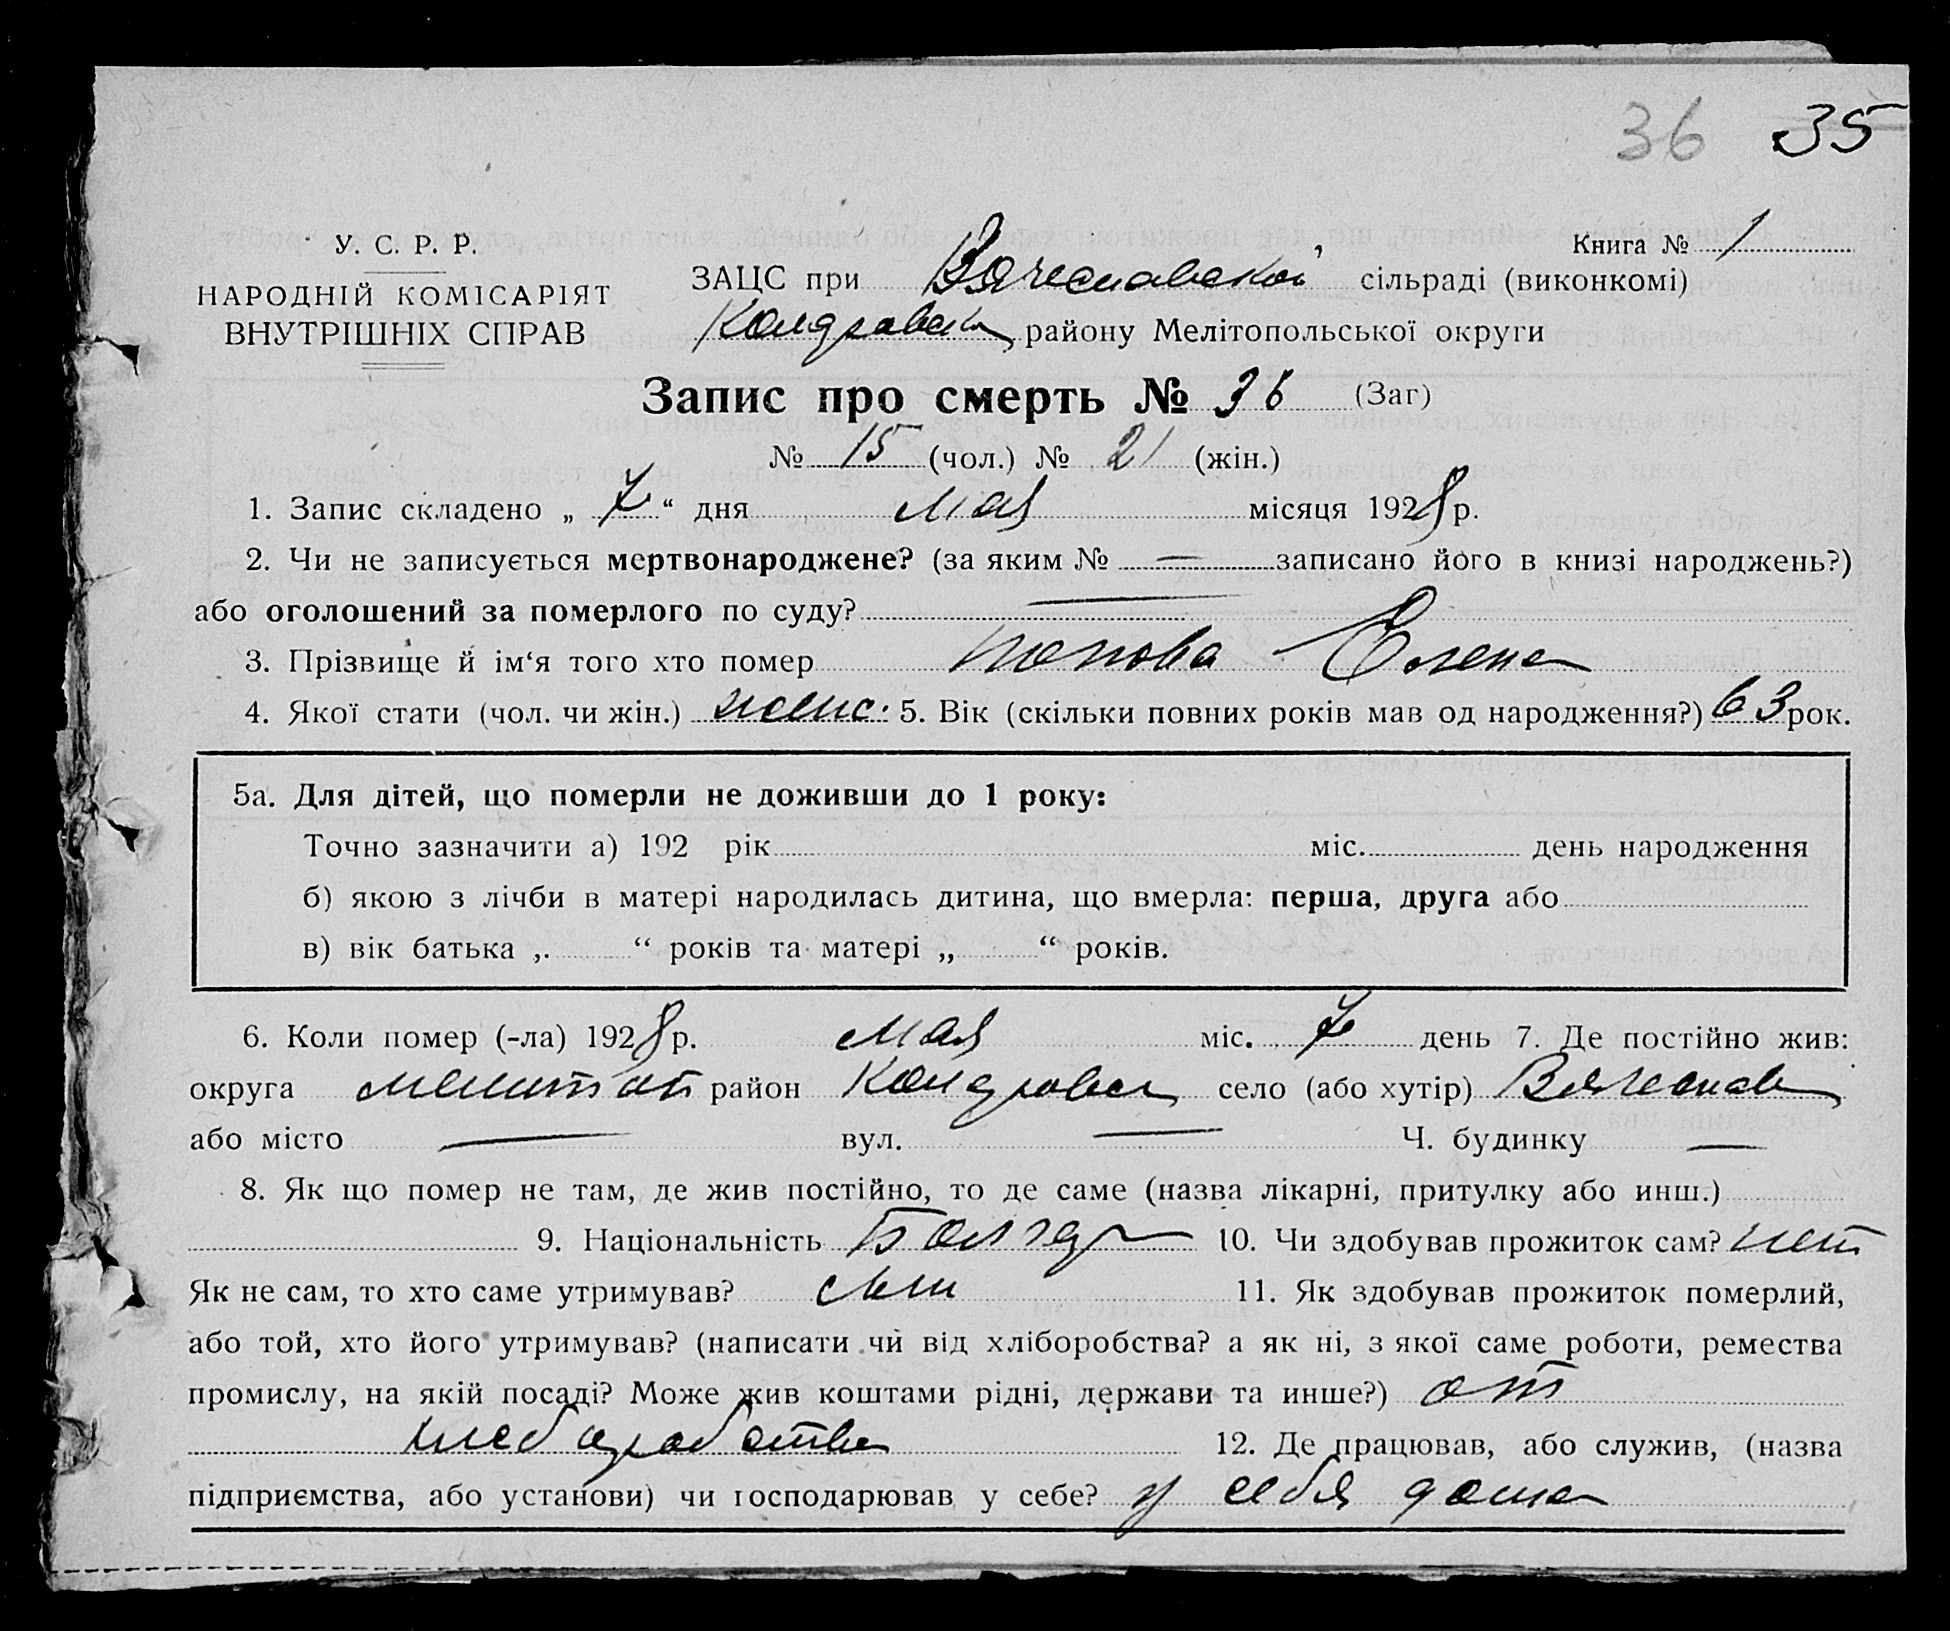 36 35
У. С. Р. Р.
НАРОДНІЙ КОМІСАРІЯТ
ВНУТРІШНІХ СПРАВ
Книга № 1
ЗАЦС при Вячеславской сільраді (виконкомі)
району Мелітопольської округи
Запис про смерть № 36 (Заг)
№ 15 (чол.) № 21 (жін.)
1. Запис складено „ 7 “ дня мая місяця 1928 р.
2. Чи не записується мертвонароджене? (за яким № — записано його в книзі народжень?)
або оголошений за померлого по суду? —
3. Прізвище й ім‘я того хто помер Попова Елена
4. Якої стати (чол. чи жін.) женс. 5. Вік (скільки повних років мав од народження?) 63 рок.
5а. Для дітей, що померли не доживши до 1 року:
Точно зазначити а) 192 рік міс. день народження
б) якою з лічби в матері народилась дитина, що вмерла: перша, друга або
в) вік батька „ “ років та матері „ “ років.
6. Коли помер (-ла) 1928 р. мая міс. 7 день 7. Де постійно жив:
округа Мелитоп район село (або хутір) Вячеслав
або місто — вул. — Ч. будинку —
8. Як що помер не там, де жив постійно, то де саме (назва лікарні, притулку або инш.)
9. Національність Болгар 10. Чи здобував прожиток сам? нет
Як не сам, то хто саме утримував? сын 11. Як здобував прожиток померлий,
або той, хто його утримував? (написати чи від хліборобства? а як ні, з якої саме роботи, ремества
промислу, на якій посаді? Може жив коштами рідні, держави та инше?) от
хлебопашества 12. Де працював, або служив, (назва
підприємства, або установи) чи господарював у себе? у себя дома